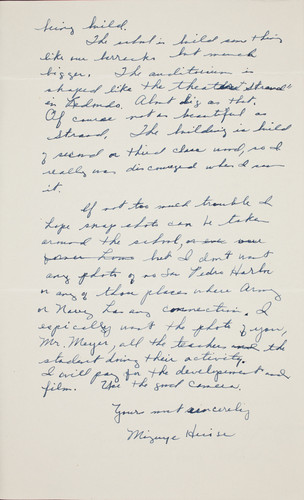 being build.
The school is build some thing
like our barracks but much
bigger. The auditorium is
shaped like the theatre "Strand"
in Redondo. About big as that.
Of course not as beautiful as
Strand. The building is build
of second or third class wood, so I
really was discouraged when I saw
it.
If not too much trouble I
hope snap shots can be taken
around the school, or even our
former home but I don't want
any photo of our San Pedro Harbor
or any of those places where Army
or Navy has any connection. I
espically want the photo of you,
Mr. Meyer, all the teacher and the
student doing their activity.
I will pay for the development and
film. Use the good camera.
Your most sincerely